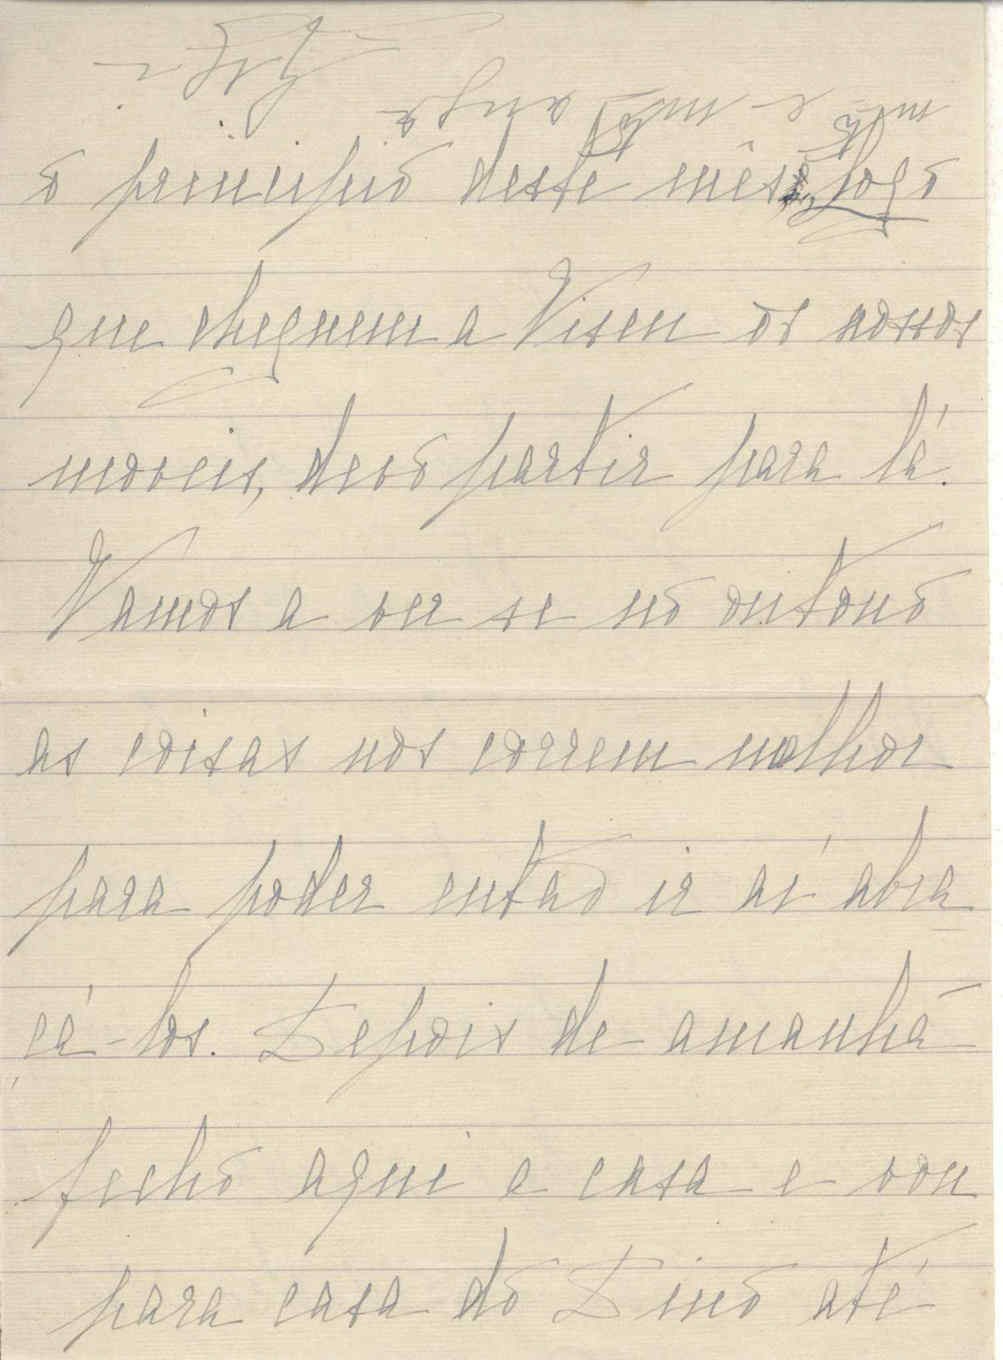 o princípio deste mês, logo
que cheguem a Viseu os nossos
moveis, devo partir para lá.
Vamos a ver se no outono
as coisas nos correm melhor
para poder então ir aí abra
çá-los. Depois de amanhã
fecho aqui a casa e vou
para casa do Dino até